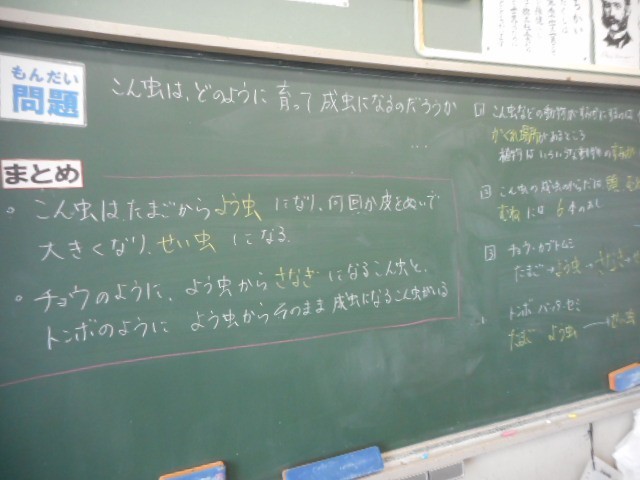 もんだい
問題
こん虫は、どのように育って成虫になるのだろうか
まとめ
。こん虫はたまごからよう虫になり、何回か皮をぬいで
大きくなり、せい虫になる。
。チョウのように、よう虫からさなぎになるこん虫と、
トンボのように よう虫からそのまま成虫になるこん虫がいる
1 こん虫などの動物が
かくれ場所があるところ
植物はいろいろな動物の
2 こん虫の成虫のからだは 頭
むねには 6本のあし
3 チョウ・カブトムシ
たまご→よう虫→さなぎ→
トンボ バッタ・セミ
たまご よう虫